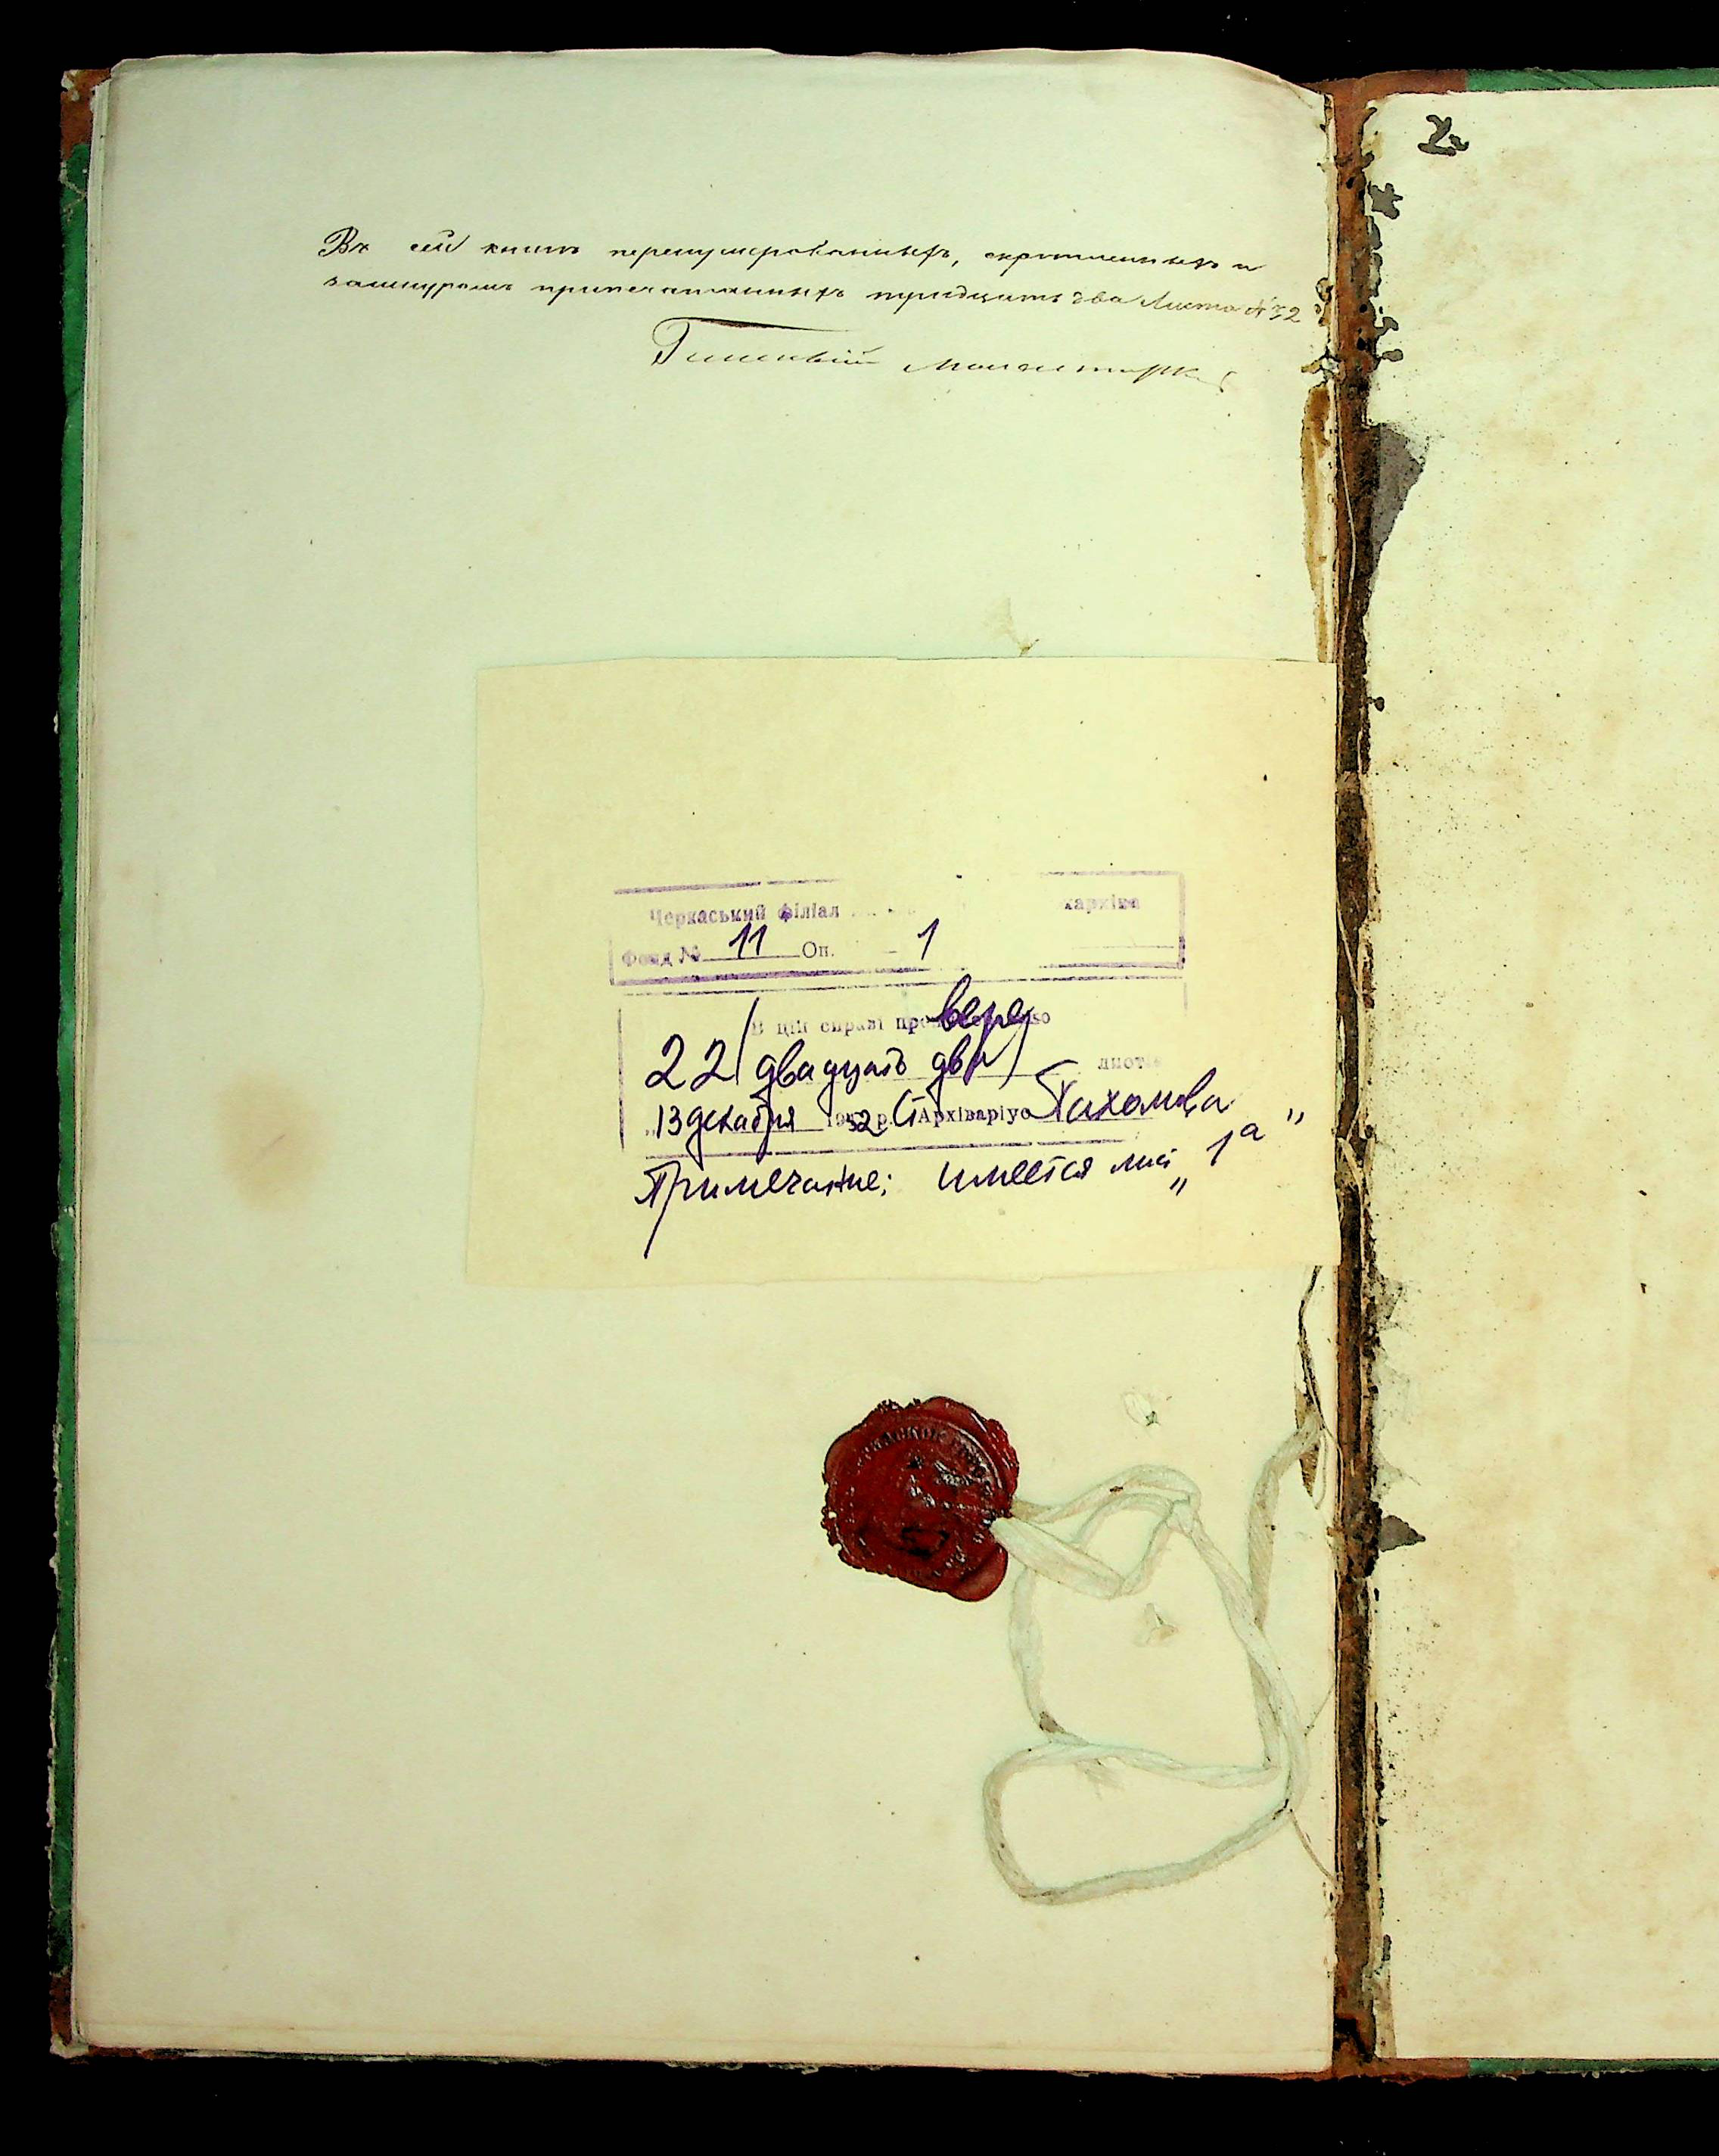 Въ сей книгѣ перенумерованныхъ, скрѣпленныхъ и
зашнуромъ припечатанныхъ тридцать два листа № 32
Черкаський філіал хархіва
Фонд № 11 Оп. 1
В цій справі про вере
22 (двадцать два) листів
"13 декабря 1952 р. Ст Архіваріус Пахомова
Примечание: имеется лист „1а"